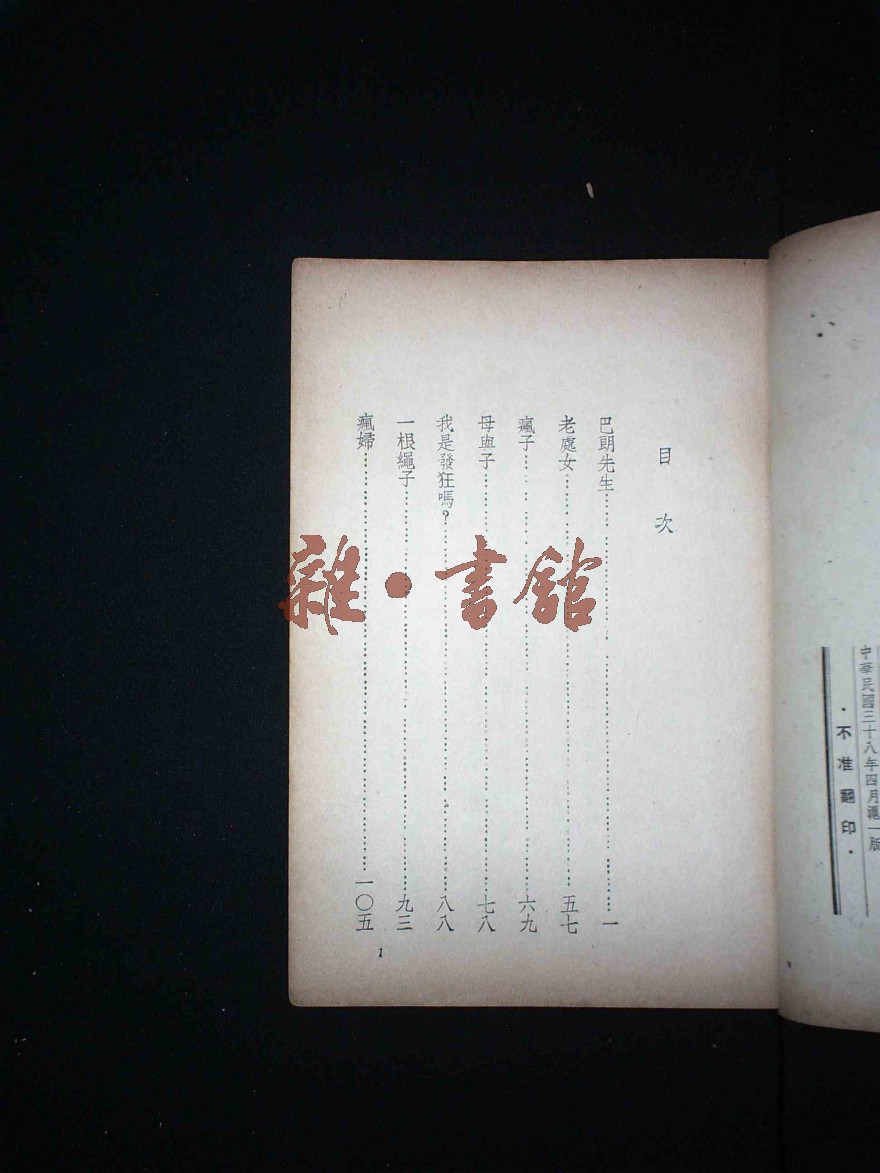 中華民國三十八年四月滬一版
·不准翻印·
目次
巴朗先生……一
老處女……五七
瘋子……六九
母與子……七八
我是發狂嗎？……八八
一根繩子……九三
瘋婦……一〇五
1
雜·書館